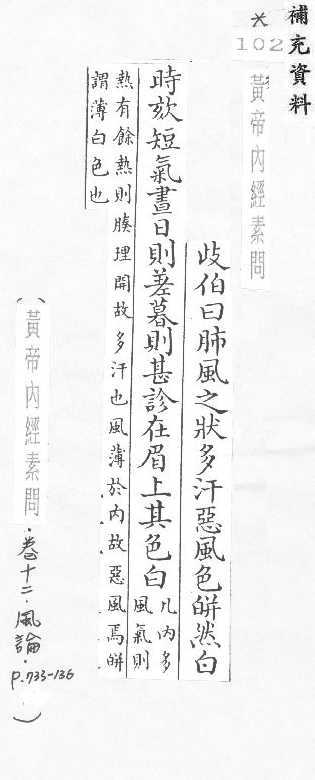 補充資料
※
102
黃帝內經素問
岐伯曰肺風之狀多汗惡風色皏然白
時欬短氣晝日則差暮則甚診在眉上其色白
凡內多
風氣則
熱有餘熱則腠理開故多汗也風薄於內故惡風焉皏
謂薄白色也
(黃帝內經素問・卷十二・風論・P.133-136)